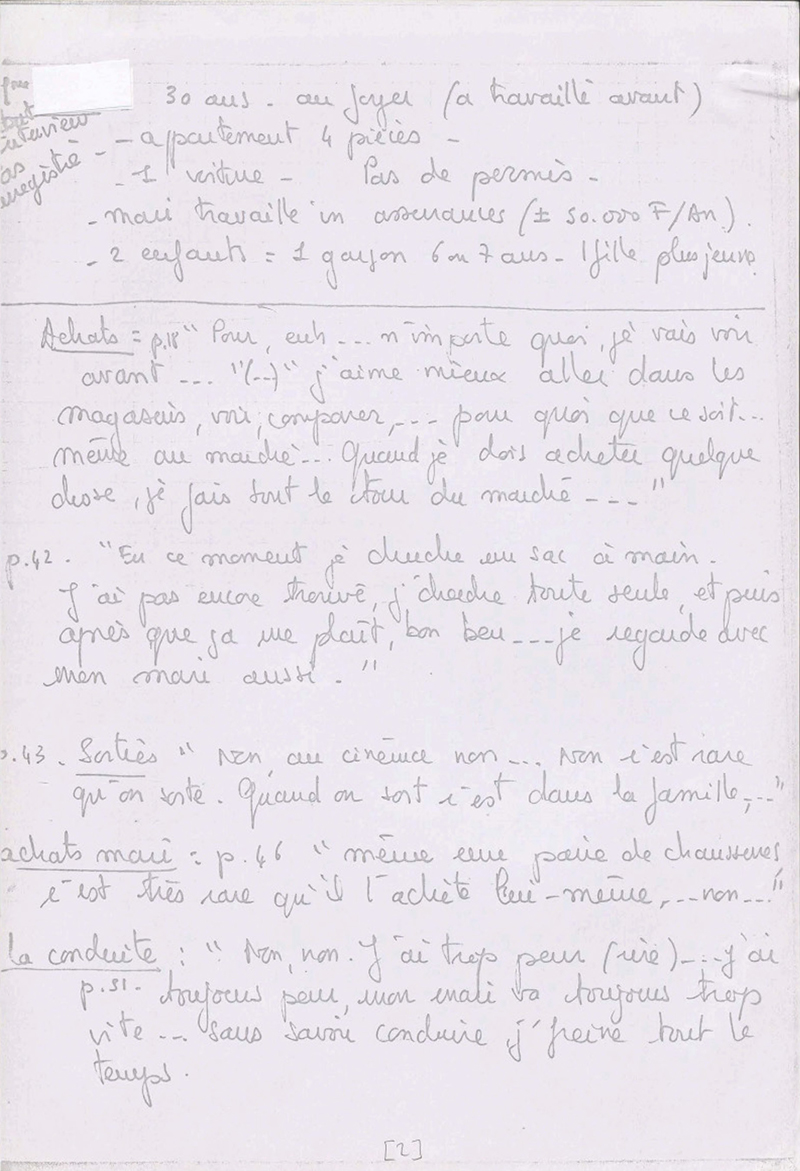 30 ans - au foyer (a travaillé avant)
- appartement 4 pièces -
- 1 voiture - Pas de permis -
- mari travaille in assurances (± 50.000 F/An).
- 2 enfants = 1 garçon 6 ou 7 ans - 1 fille plus jeune
tout
interview
pas
enregistré -
Achats = p.18 " Pour, euh --- n'importe quoi, je vais voir
avant --- "(--)" j'aime mieux aller dans les
magasins, voir, comparer, --- pour quoi que ce soit...
même au marché --- Quand je dois acheter quelque
chose, je fais tout le tour du marché --- "
p.42 - "En ce moment je cherche un sac à main.
J'ai pas encore trouvé, j'cherche toute seule, et puis
après que ça me plaît, bon ben --- je regarde avec
mon mari aussi. "
p.43. Sorties " Non, au cinéma non --- Non c'est rare
qu'on sorte. Quand on sort c'est dans la famille, --- "
achats mari = p.46 " même une paire de chaussures
c'est très rare qu'il l'achète lui-même, --- non --- "
la conduite : " Non, non. J'ai trop peur (rire) --- j'ai
p.51. toujours peur, mon mari va toujours trop
vite --- sans savoir conduire, j'freine tout le
temps.
[2]